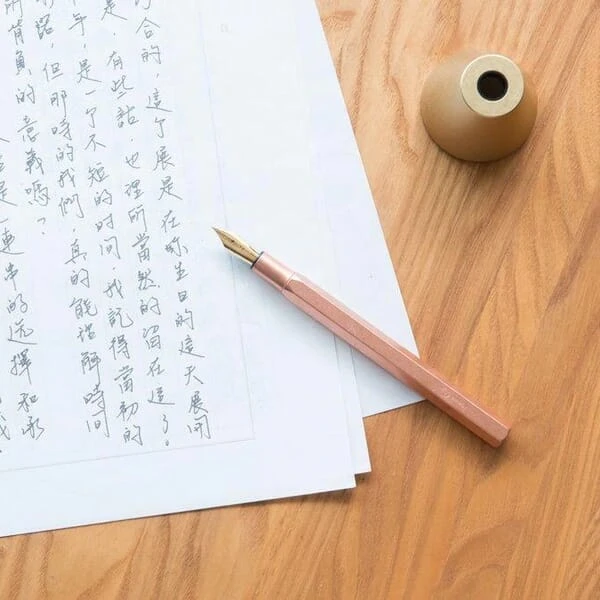 合的，這个展是在你生日的這天展開
是，有些話，也理所當然的留在這了。
年，是一个不短的时间，我記得當初的
但那時的我們，真的能理解時間
所背負的意義嗎？
是一連串的選擇和